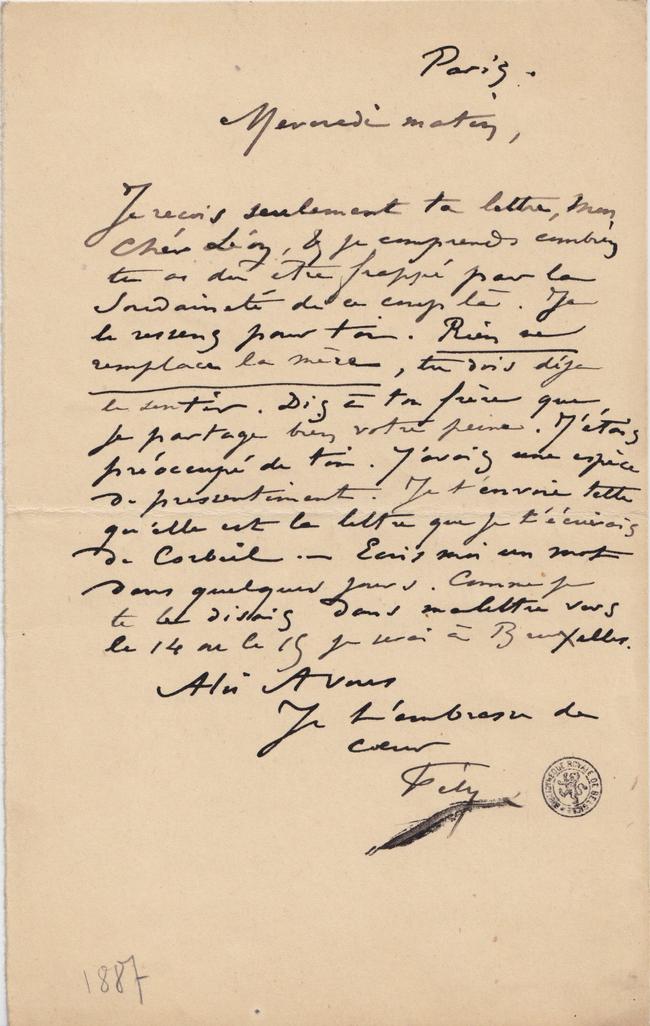 Paris.
Mercredi matin,
Je reçois seulement ta lettre, mon
Cher Léon, & je comprends combien
tu as dû être frappé par la
Soudaineté de ce coup là. Je
le ressens pour toi. Rien ne
remplace la mère, tu dois déja
le sentir. Dis à ton frère que
je partage bien votre peine. J'étais
préoccupé de toi. J'avais une espèce
de pressentiment. Je t'envoie telle
qu'elle est la lettre que je t'écrivais
de Corbeil. — Ecris moi un mot
dans quelques jours. Comme je
te le disais dans ma lettre vers
le 14 ou le 15 je serai à Bruxelles.
A Vous
Je t'embrasse de
cœur
Fély
BIBLIOTHEQUE ROYALE DE BELGIQUE
1887